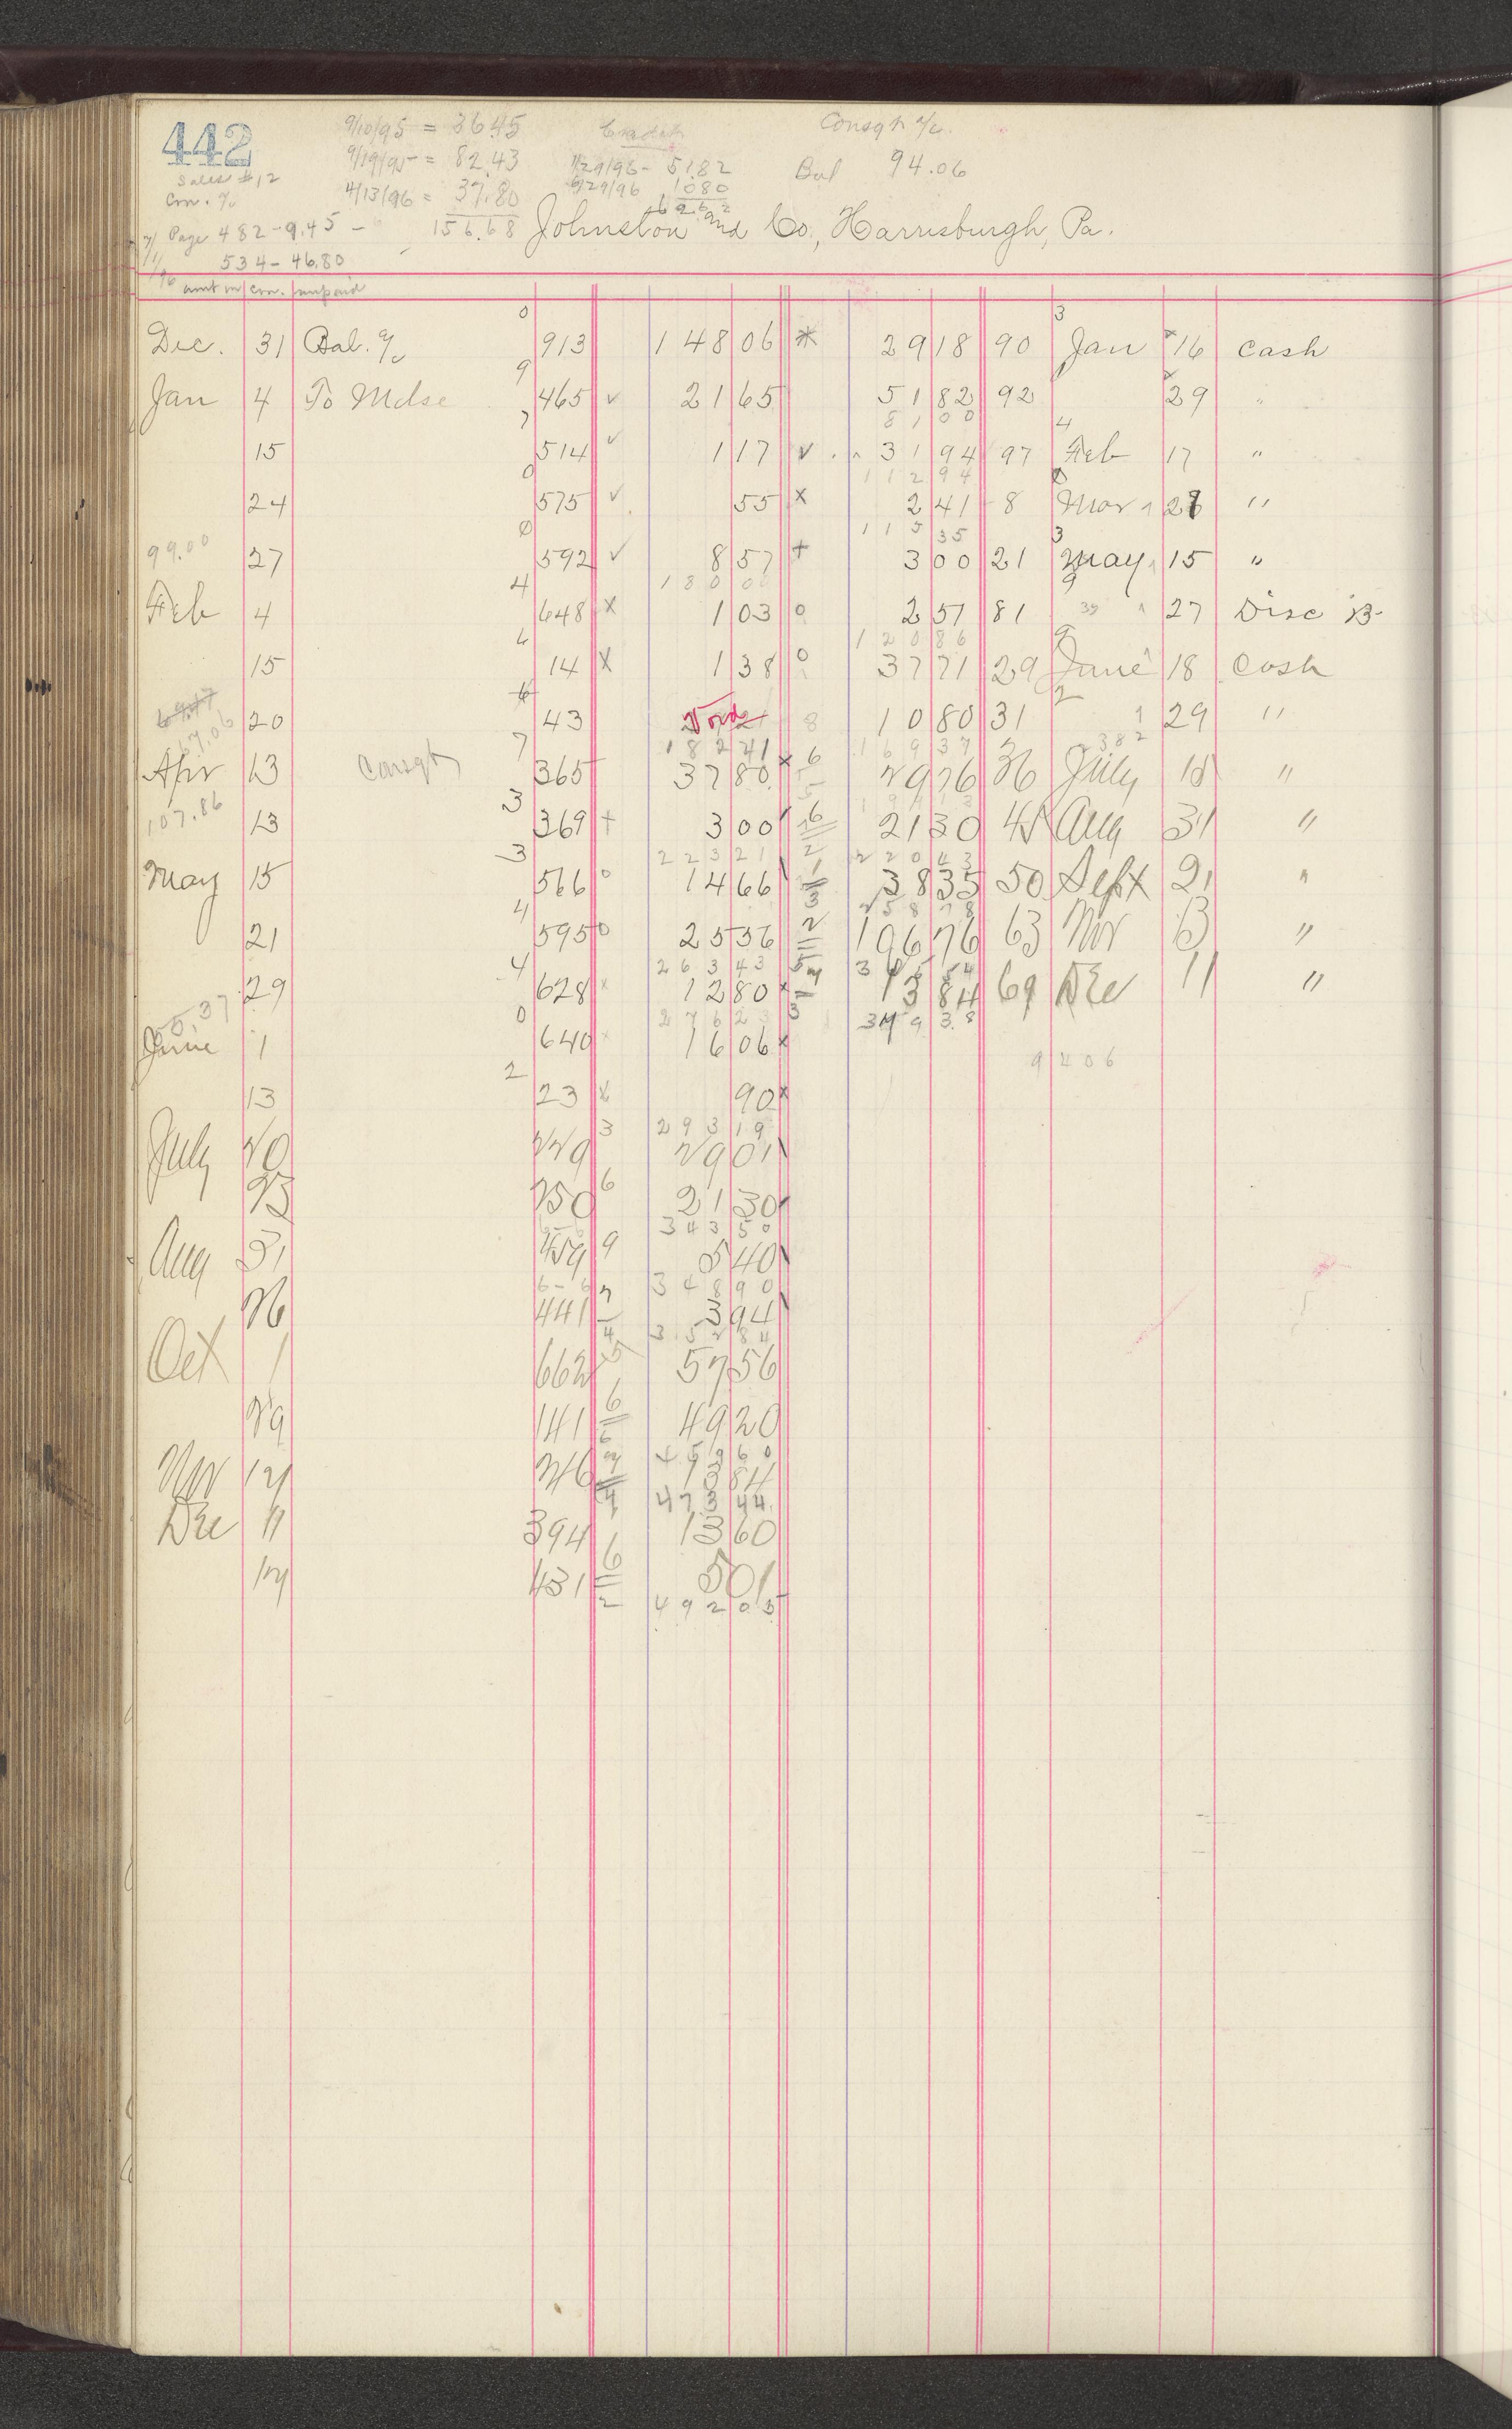 442
9/10/95 = 36.45 Credit Consgn a/c.
9/19/95 = 82.43 1/29/96 - 51.82 Bal 94.06
Sales #12 4/13/96 = 37.80 6/29/96 10.80
Con. a/c 156.68 62.62
Page 482-9.45 -
534-46.80
Johnston and Co., Harrisburgh, Pa.
amt in con. unpaid
Dec. 31 Bal. a/c 913 148 06 29 18 90 Jan 16 Cash
Jan 4 To Mdse 465 ✓ 21 65 51 82 92 29 "
81 00
15 514 ✓ 1 17 ✓ 31 94 97 Feb 17 "
112 94
24 575 ✓ 55 x 2 41 8 Mar 28 "
115 35
99.00 27 592 ✓ 8 57 + 3 00 21 May 15 "
180 00
Feb 4 648 x 1 03 o 2 51 81 27 Disc B
120 86
15 14 x 1 38 o 37 71 29 June 18 Cash
20 43 Void 10 80 31 29 "
67.06 182 41 169 37 382
Apr 13 Consgt 365 37 80 x 29 76 36 July 18 "
107.86 13 369 + 3 00 21 30 45 Aug 31 "
223 21 220 43
May 15 566 o 14 66 38 35 50 Sept 21 "
258 78
21 595 o 25 36 106 76 63 Nov 13 "
263 43
29 628 x 12 80 x 13 84 69 Dec 11 "
276 23 379 38
June 1 640 16 06 x
94 06
13 23 x 90 x
293 19
July 20 229 29 01
23 250 21 30
343 50
Aug 31 459 5 40
348 90
26 441 3 94
352 84
Oct 1 662 57 56
29 141 49 20
459 60
Nov 17 246 13 84
473 44
Dec 11 394 13 60
17 431 5 01
492 05